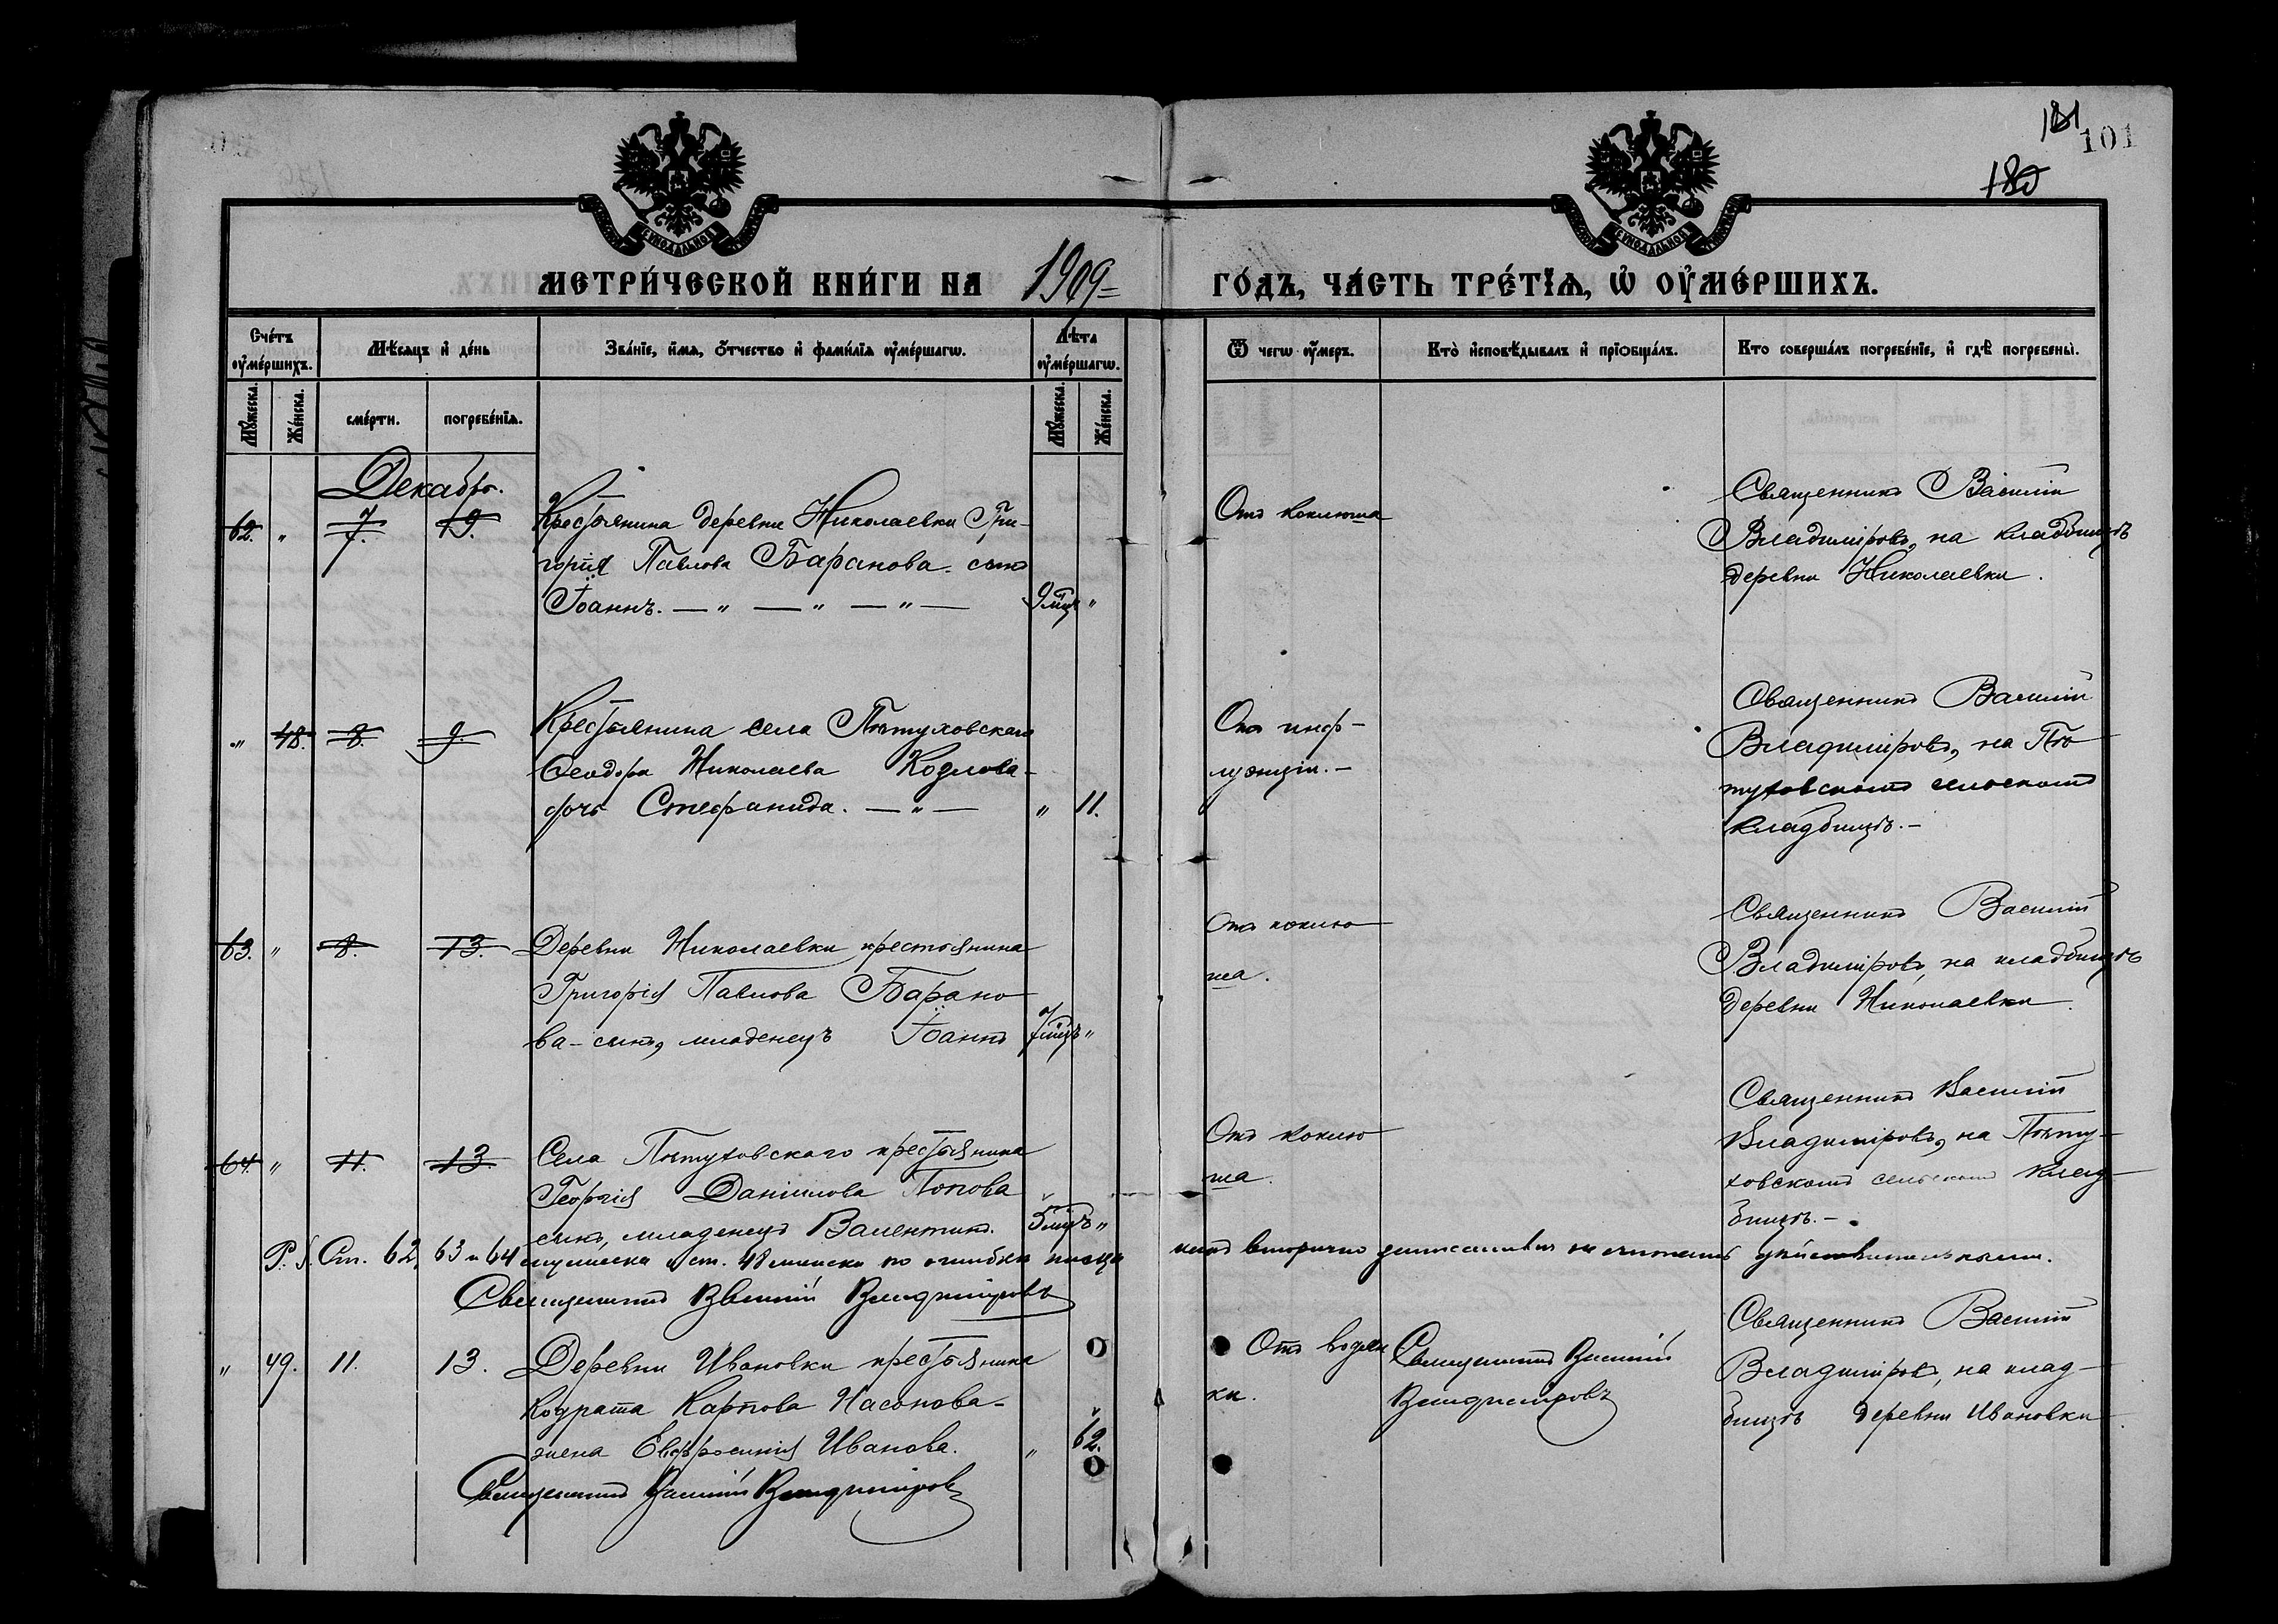 181
101
180
МЕТРИ́ЧЕСКОЙ КНИ́ГИ НА 1909 ГО́ДЪ, ЧА́СТЬ ТРЕ́ТЇѦ, Ѡ҆ ОУ҆МЕ́РШИХЪ.
Сче́тъ оу҆ме́ршихъ.
Мѣ́сяцъ и҆ де́нь
Зва́нїе, и҆́мя, ѻ҆́тчество и҆ фами́лїя оу҆ме́ршагѡ.
Лѣ́та оу҆ме́ршагѡ.
Ѿ чегѡ̀ оу҆́меръ.
Кто̀ и҆сповѣ́дывалъ и҆ прїѻбща́лъ.
Кто̀ соверша́лъ погребе́нїе, и҆ гдѣ̀ погребены̀.
Му́жеска.
Же́нска.
сме́рти.
погребе́нїя.
Му́жеска.
Же́нска.
Декабрь.
62. " 7. 9.
Крестьянина деревни Николаевки Гри-
горія Павлова Баранова сынъ
Іоаннъ. — " — " — " —
9 мцъ "
Отъ коклюша
Священникъ Василій
Владиміровъ, на кладбищѣ
деревни Николаевки.
" 48. 8. 9.
Крестьянина села Пѣтуховскаго
Ѳеодора Николаева Козлова-
дочь Стефанида. — " —
" 11.
Отъ инф-
луэнціи. -
Священникъ Василій
Владиміровъ, на Пѣ-
туховскомъ сельскомъ
кладбищѣ. -
63. " 8. 13.
Деревни Николаевки крестьянина
Григорія Павлова Барано-
ва - сынъ, младенецъ Іоаннъ
мцъ "
Отъ коклю-
ша.
Священникъ Василій
Владиміровъ, на кладбищѣ
деревни Николаевки.
64. " 11. 13.
Села Пѣтуховскаго крестьянина
Георгія Даніилова Попова
сынъ, младенецъ Валентинъ.
5 мцъ "
Отъ коклю-
ша.
Священникъ Василій
Владиміровъ, на Пѣту-
ховскомъ сельскомъ клад-
бищѣ. -
P.S. Ст. 62, 63 и 64 мужеска и ст. 48 женска по ошибкѣ вторично не считать дѣйствительными.
Священникъ Василій Владиміровъ
" 49. 11. 13.
Деревни Ивановки крестьянина
Кодрата Карпова Насонова-
жена Евфросинія Иванова.
" 62.
Отъ водян-
ки.
Священникъ Василій
Владиміровъ
Священникъ Василій
Владиміровъ, на клад-
бищѣ деревни Ивановки
Священникъ Василій Владиміровъ